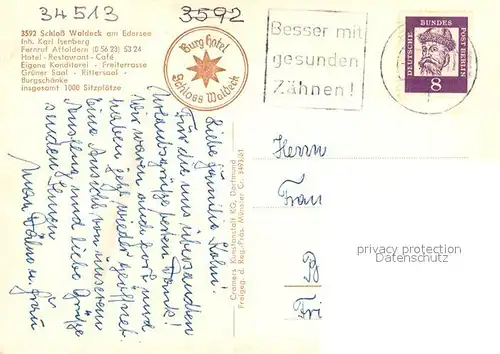 34513
3592
3592 Schloß Waldeck am Edersee
Inh. Karl Isenberg
Fernruf Affoldern (0 56 23) 53 24
Hotel - Restaurant - Café
Eigene Konditorei - Freiterrasse
Grüner Saal - Rittersaal -
Burgschänke
insgesamt 1000 Sitzplätze
Burg Hotel
Schloss Waldeck
Besser mit
gesunden
Zähnen!
DEUTSCHE BUNDES POST BERLIN
8
Liebe Familie
Für die uns übersandten
Urlaubsgrüße besten Dank!
Wir waren auch fort und
haben jetzt wieder geöffnet.
Eine Ansicht von unserem
Ausflug und liebe Grüße
senden Ihnen
u. Frau
Cramers Kunstanstalt KG, Dortmund
Freigeg. d. Reg.-Präs. Münster Cr. 3493/61
Herrn
Frau
privacy protection
Gewährleistung